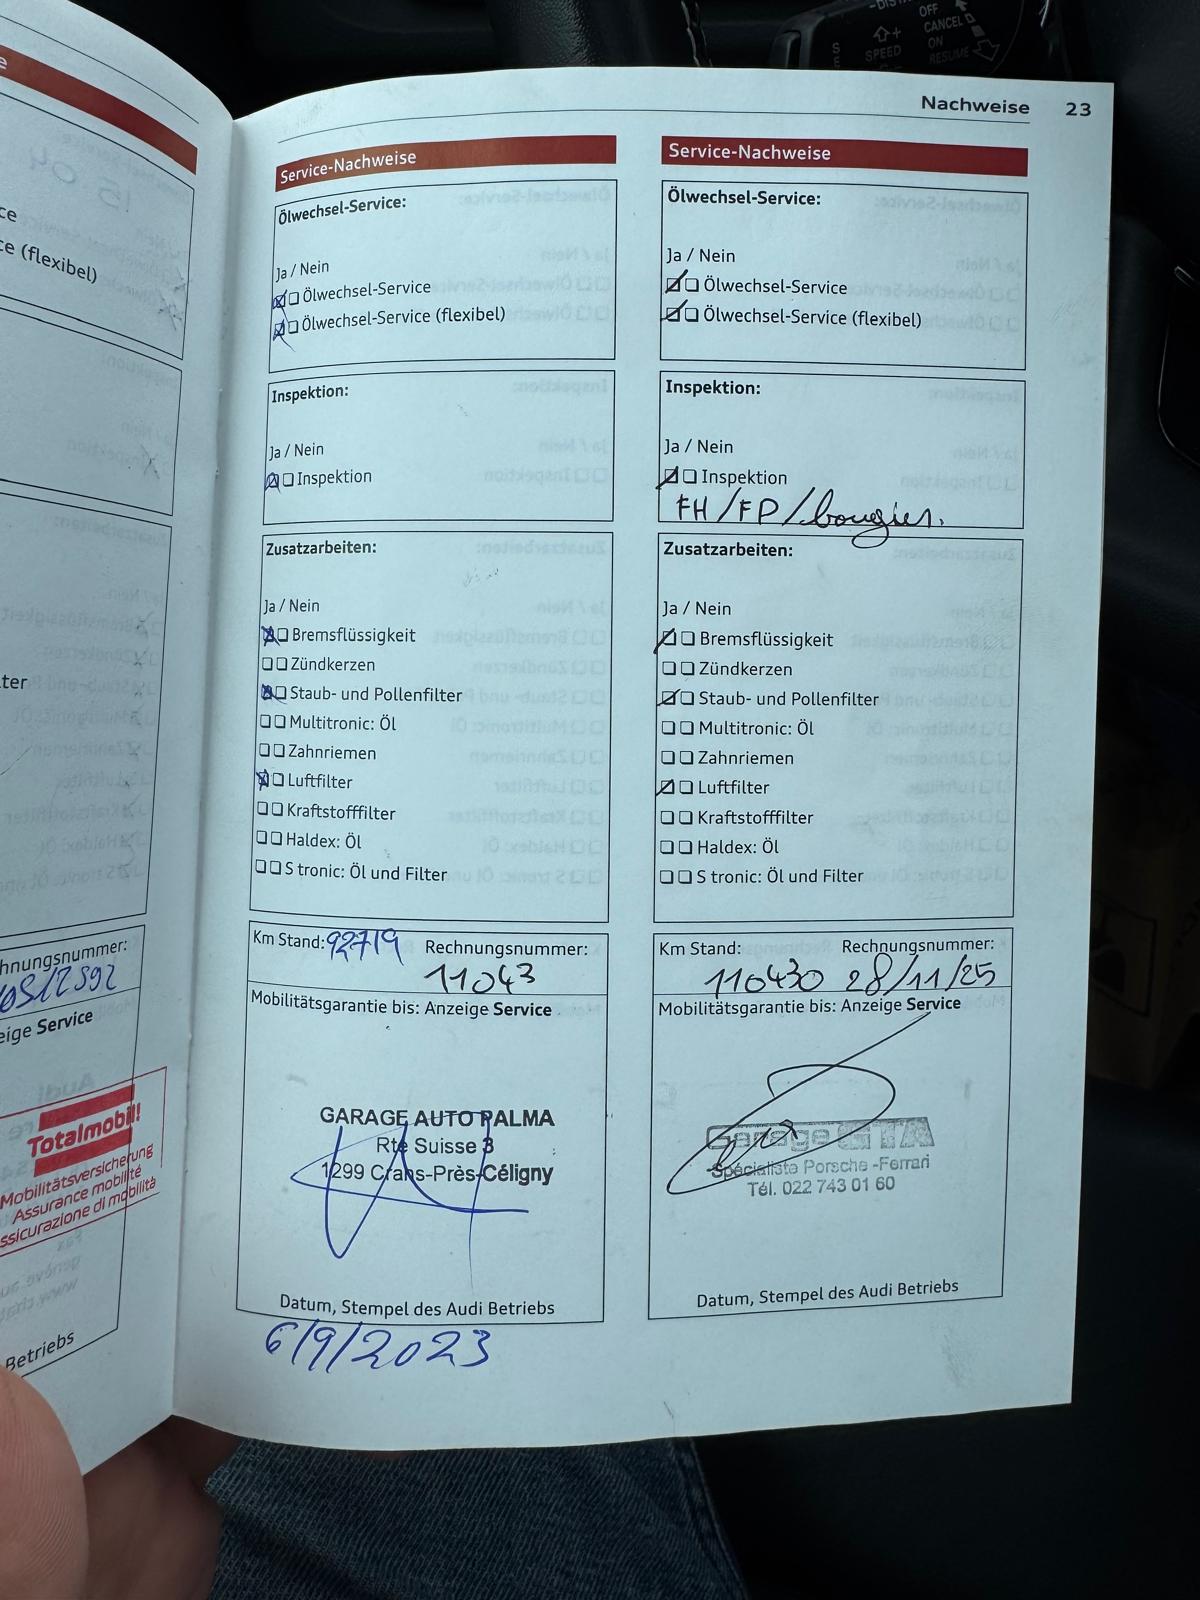 DIST
OFF
CANCEL
SPEED
ON
RESUME
Nachweise 23
ce
ce (flexibel)
ter
hnungsnummer:
eige Service
Totalmobil!
Mobilitätsversicherung
Assurance mobilité
ssicurazione di mobilità
Betriebs
Service-Nachweise
Ölwechsel-Service:
Ja / Nein
Ölwechsel-Service
Ölwechsel-Service (flexibel)
Inspektion:
Ja / Nein
Inspektion
Zusatzarbeiten:
Ja / Nein
Bremsflüssigkeit
Zündkerzen
Staub- und Pollenfilter
Multitronic: Öl
Zahnriemen
Luftfilter
Kraftstofffilter
Haldex: Öl
S tronic: Öl und Filter
Km Stand: 92719 Rechnungsnummer:
11043
Mobilitätsgarantie bis: Anzeige Service
GARAGE AUTO PALMA
Rte Suisse 3
1299 Crans-Près-Céligny
Datum, Stempel des Audi Betriebs
6/9/2023
Service-Nachweise
Ölwechsel-Service:
Ja / Nein
Ölwechsel-Service
Ölwechsel-Service (flexibel)
Inspektion:
Ja / Nein
Inspektion
FH/FP/bougies.
Zusatzarbeiten:
Ja / Nein
Bremsflüssigkeit
Zündkerzen
Staub- und Pollenfilter
Multitronic: Öl
Zahnriemen
Luftfilter
Kraftstofffilter
Haldex: Öl
S tronic: Öl und Filter
Km Stand: Rechnungsnummer:
110430 28/11/25
Mobilitätsgarantie bis: Anzeige Service
Garage GTA
Spécialiste Porsche -Ferrari
Tél. 022 743 01 60
Datum, Stempel des Audi Betriebs